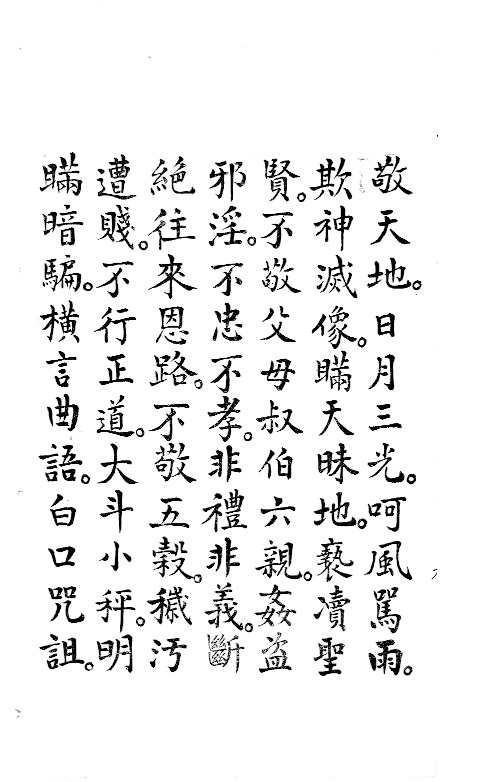 敬天地。日月三光。呵風罵雨。
欺神滅像。瞞天昧地。褻瀆聖
賢。不敬父母叔伯六親。姦盜
邪淫。不忠不孝。非禮非義。斷
絕往來恩路。不敬五穀。穢汚
遭賤。不行正道。大斗小秤。明
瞞暗騙。橫言曲語。白口咒詛。